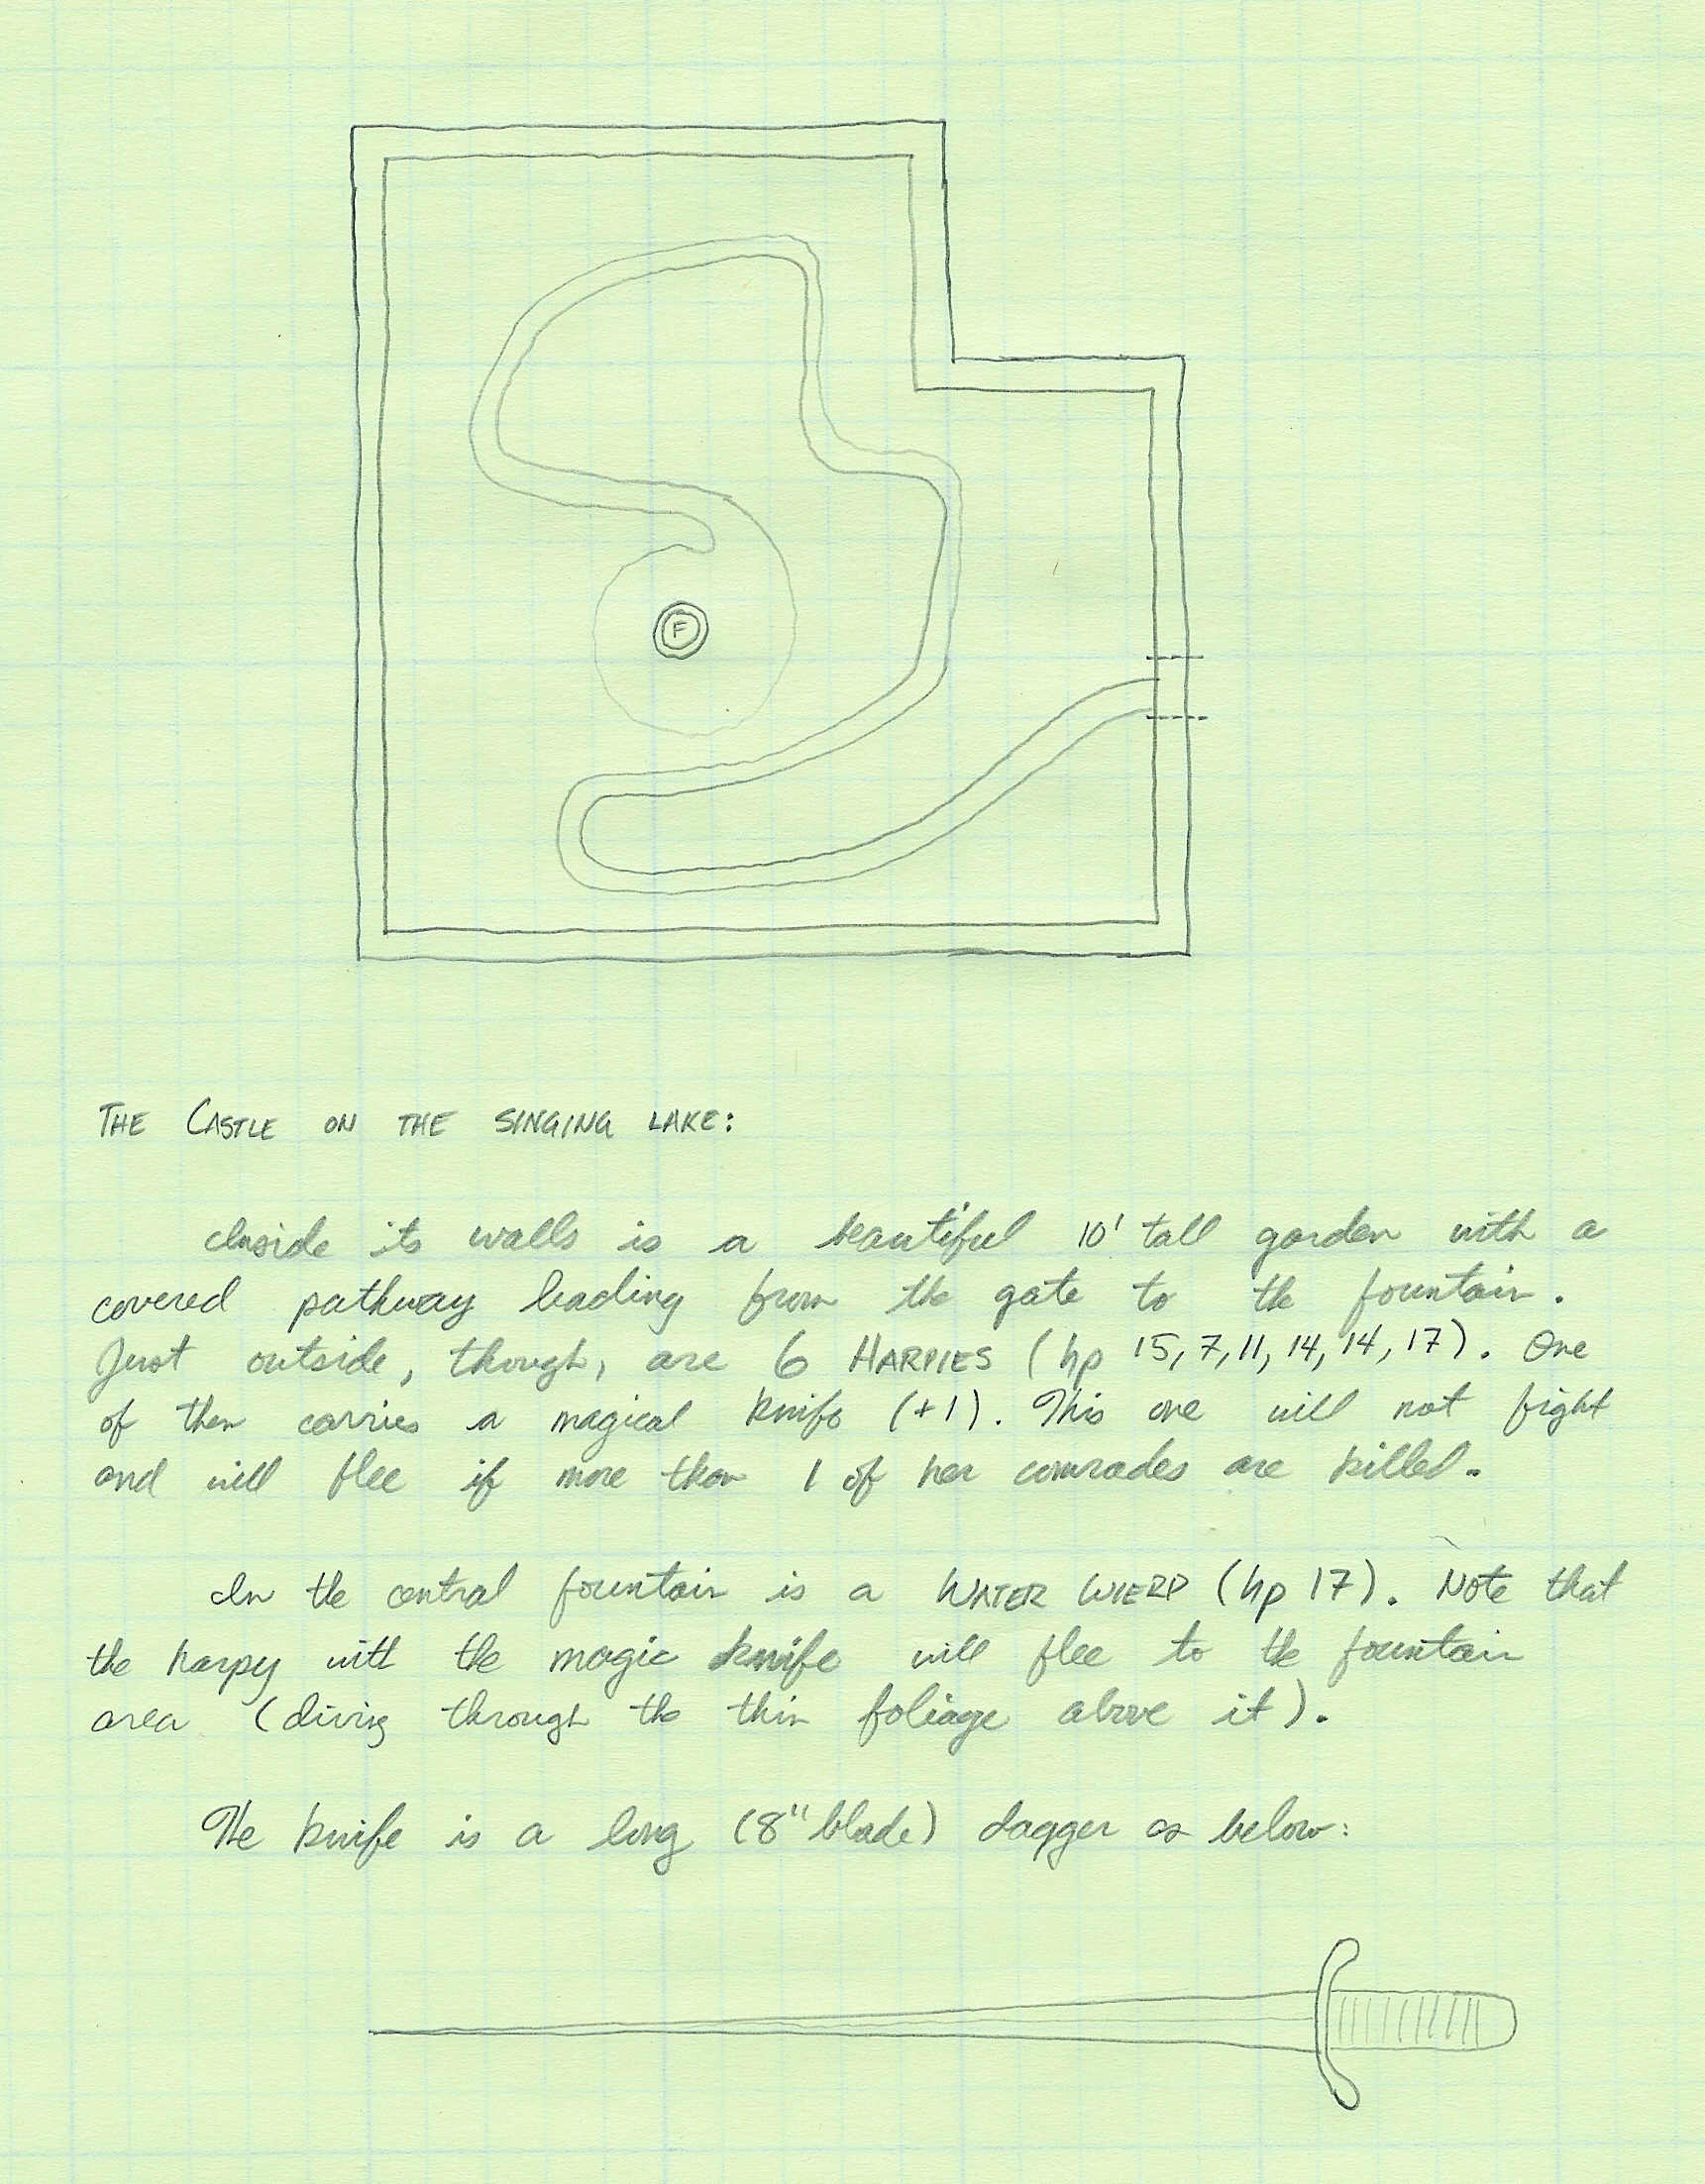 F
THE CASTLE ON THE SINGING LAKE:
Inside its walls is a beautiful 10' tall garden with a
covered pathway leading from the gate to the fountain.
Just outside, though, are 6 HARPIES (hp 15, 7, 11, 14, 14, 17). One
of them carries a magical knife (+1). This one will not fight
and will flee if more than 1 of her comrades are killed.
In the central fountain is a WATER WIERD (hp 17). Note that
the harpy with the magic knife will flee to the fountain
area (diving through the thin foliage above it).
The knife is a long (8" blade) dagger as below: